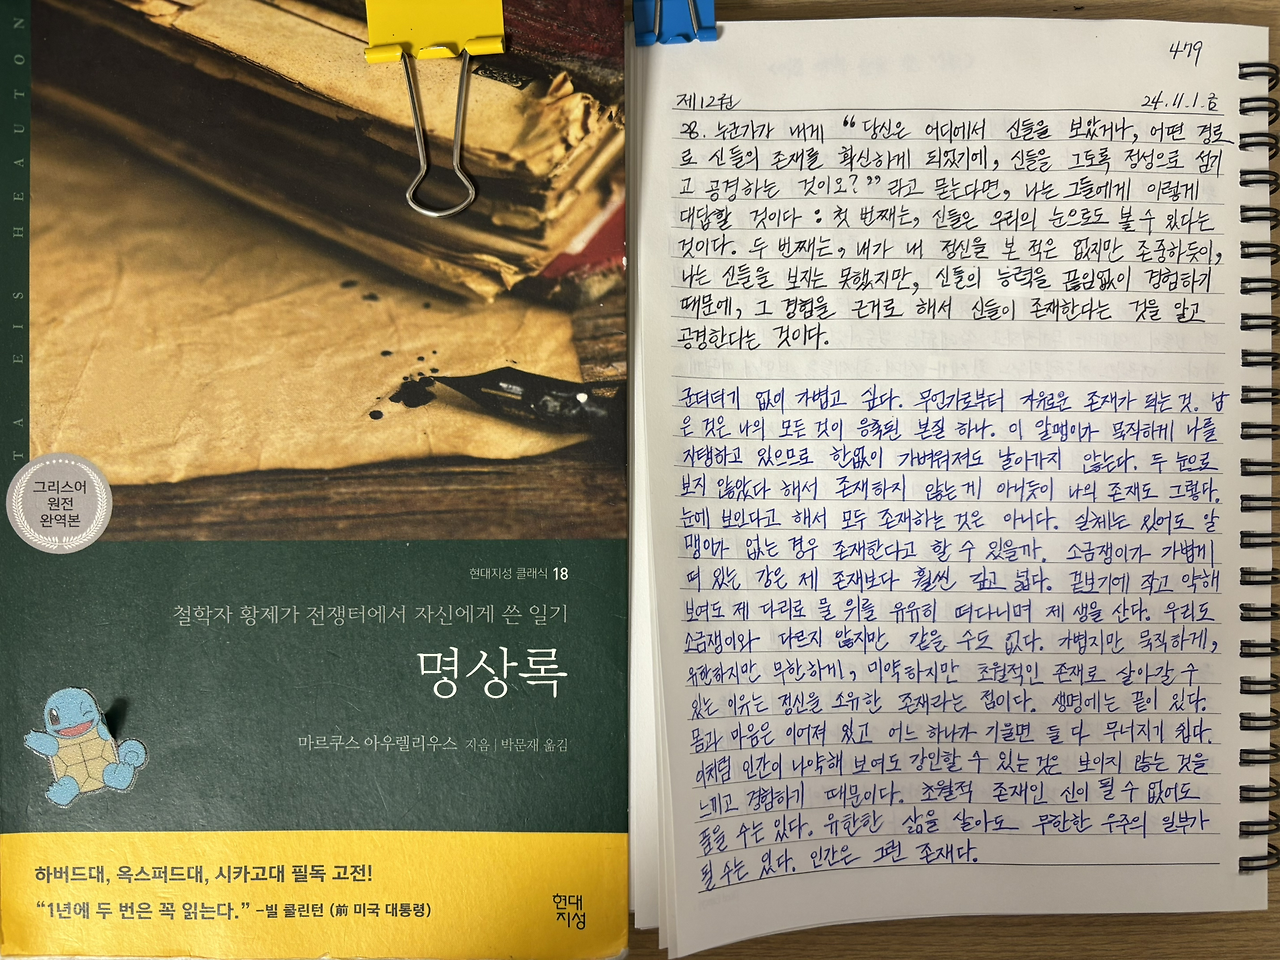 TA EIS HEAUTON
그리스어
원전
완역본
현대지성 클래식 18
철학자 황제가 전쟁터에서 자신에게 쓴 일기
명상록
마르쿠스 아우렐리우스 지음 | 박문재 옮김
하버드대, 옥스퍼드대, 시카고대 필독 고전!
“1년에 두 번은 꼭 읽는다.” –빌 클린턴 (前 미국 대통령)
현대
지성
479
제12권 24.11.1.금
28. 누군가가 내게 “당신은 어디에서 신들을 보았거나, 어떤 경로
로 신들의 존재를 확신하게 되었기에, 신들을 그토록 정성으로 섬기
고 공경하는 것이오?” 라고 묻는다면, 나는 그들에게 이렇게
대답할 것이다 : 첫 번째는, 신들은 우리의 눈으로도 볼 수 있다는
것이다. 두 번째는, 내가 내 정신을 본 적은 없지만 존중하듯이,
나는 신들을 보지는 못했지만, 신들의 능력을 끊임없이 경험하기
때문에, 그 경험을 근거로 해서 신들이 존재한다는 것을 알고
공경한다는 것이다.
군더더기 없이 가볍고 싶다. 무언가로부터 자유로운 존재가 되는 것. 남
은 것은 나의 모든 것이 응축된 본질 하나. 이 알맹이가 묵직하게 나를
지탱하고 있으므로 한없이 가벼워져도 날아가지 않는다. 두 눈으로
보지 않았다 해서 존재하지 않는게 아니듯이 나의 존재도 그렇다.
눈에 보인다고 해서 모두 존재하는 것은 아니다. 실체는 있어도 알
맹이가 없는 경우 존재한다고 할 수 있을까. 소금쟁이가 가볍게
떠 있는 강은 제 존재보다 훨씬 깊고 넓다. 겉보기에 작고 약해
보여도 제 다리로 물 위를 유유히 떠다니며 제 생을 산다. 우리도
소금쟁이와 다르지 않지만 같을 수도 없다. 가볍지만 묵직하게,
유한하지만 무한하게, 미약하지만 초월적인 존재로 살아갈 수
있는 이유는 정신을 소유한 존재라는 점이다. 생명에는 끝이 있다.
몸과 마음은 이어져 있고 어느 하나가 기울면 둘 다 무너지기 쉽다.
이처럼 인간이 나약해 보여도 강인할 수 있는 것은 보이지 않는 것을
느끼고 경험하기 때문이다. 초월적 존재인 신이 될 수 없어도
품을 수는 있다. 유한한 삶을 살아도 무한한 우주의 일부가
될 수는 있다. 인간은 그런 존재다.